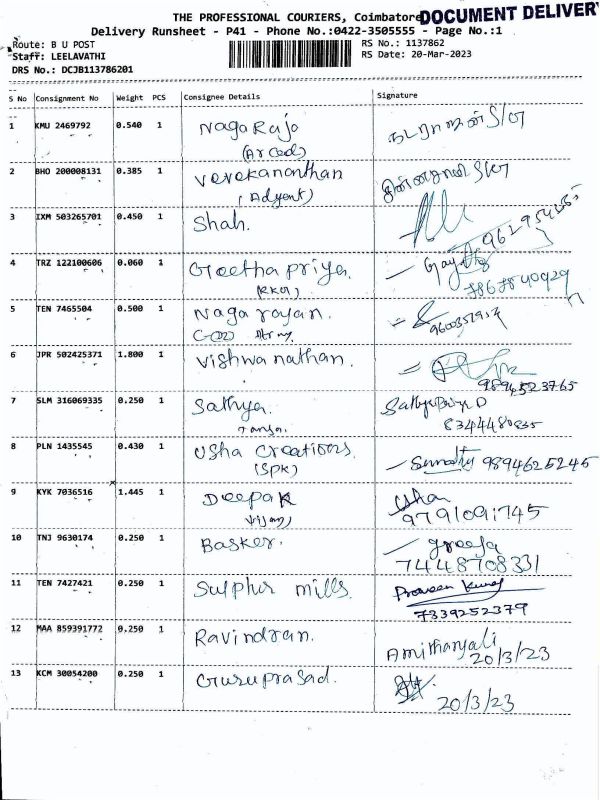 THE PROFESSIONAL COURIERS, Coimbatore DOCUMENT DELIVERY
Delivery Runsheet - P41 - Phone No.:0422-3505555 - Page No.:1
Route: B U POST RS No.: 1137862
Staff: LEELAVATHI RS Date: 20-Mar-2023
DRS No.: DCJB113786201
S No Consignment No Weight PCS Consignee Details Signature
1 KMU 2469792 0.540 1 Nagarajo
2 BHO 200008131 0.385 1 Vevekananthan
3 IXM 503265701 0.450 1 Shah.
4 TRZ 122100606 0.060 1 Geethapriya.
5 TEN 7465504 0.500 1 Nagarayan.
6 JPR 502425371 1.800 1 Vishwanathan.
9894523765
7 SLM 316069335 0.250 1 Sathya. Sathya Priya D
8344480835
8 PLN 1435545 0.430 1 Usha Creations. 9894625245
(SPK)
9 KYK 7036516 1.445 1 Deepak Usha
9791091745
10 TNJ 9630174 0.250 1 Basker. Greeja
7448708331
11 TEN 7427421 0.250 1 Sulphur mills. Praveen Kumar
7339252379
12 MAA 859391772 0.250 1 Ravindran. Amithanjali
20/3/23
13 KCM 30054200 0.250 1 Guruprasad.
20/3/23